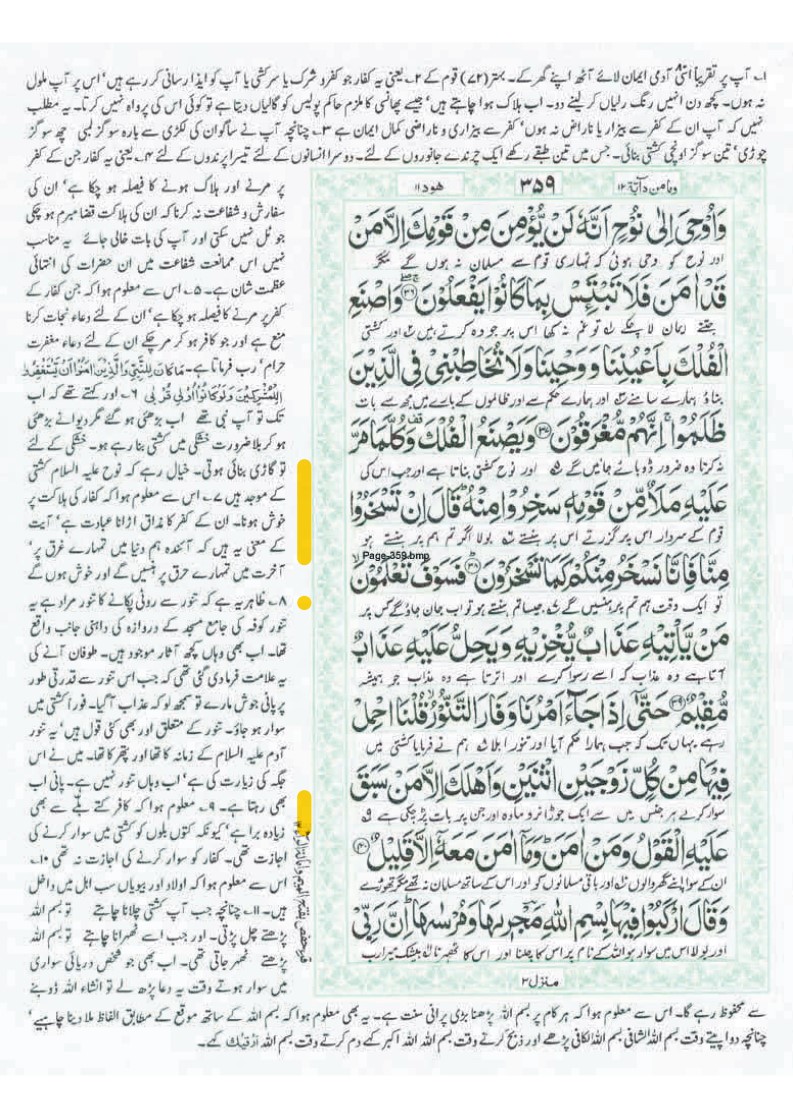 ۱؎ آپ پر تقریباً اسّی آدمی ایمان لائے آٹھ اپنے گھر کے۔ بہتر (۷۲) قوم کے ۲؎ یعنی یہ کفار جو کفر و شرک یا سرکشی یا آپ کو ایذا رسانی کر رہے ہیں' اس پر آپ ملول
نہ ہوں۔ کچھ دن انہیں رنگ رلیاں کر لینے دو۔ اب ہلاک ہوا چاہتے ہیں' جیسے پھانسی کا ملزم حاکم پولیس کو گالیاں دیتا ہے تو کوئی اس کی پرواہ نہیں کرتا۔ یہ مطلب
نہیں کہ آپ ان کے کفر سے بیزار یا ناراض نہ ہوں' کفر سے بیزاری و ناراضی کمال ایمان ہے ۳؎ چنانچہ آپ نے ساگوان کی لکڑی سے بارہ سو گز لمبی چھ سو گز
چوڑی' تین سو گز اونچی کشتی بنائی۔ جس میں تین طبقے رکھے ایک چرندے جانوروں کے لئے۔ دوسرا انسانوں کے لئے تیسرا پرندوں کے لئے ۴؎ یعنی یہ کفار جن کے کفر
ومامن دآبۃ ۱۲
۳۵۹
ھود ۱۱
وَاُوْحِىَ اِلٰى نُوْحٍ اَنَّهٗ لَنْ يُّؤْمِنَ مِنْ قَوْمِكَ اِلَّا مَنْ
اور نوح کو وحی ہوئی کہ تمہاری قوم سے مسلمان نہ ہوں گے مگر
قَدْ اٰمَنَ فَلَا تَبْتَئِسْ بِمَا كَانُوْا يَفْعَلُوْنَ ۳۶ وَاصْنَعِ
جتنے ایمان لا چکے ۱؎ تو غم نہ کھا اس پر جو وہ کرتے ہیں ۲؎ اور کشتی
الْفُلْكَ بِاَعْيُنِنَا وَوَحْيِنَا وَلَا تُخَاطِبْنِىْ فِى الَّذِيْنَ
بناؤ ہمارے سامنے ۳؎ اور ہمارے حکم سے اور ظالموں کے بارے میں مجھ سے بات
ظَلَمُوْا اِنَّهُمْ مُّغْرَقُوْنَ ۳۷ وَيَصْنَعُ الْفُلْكَ وَكُلَّمَا مَرَّ
نہ کرنا وہ ضرور ڈوبائے جائیں گے ۵؎ اور نوح کشتی بناتا ہے اور جب اس کی
عَلَيْهِ مَلَاٌ مِّنْ قَوْمِهٖ سَخِرُوْا مِنْهُ قَالَ اِنْ تَسْخَرُوْا
قوم کے سردار اس پر گزرتے اس پر ہنستے ۶؎ بولا اگر تم ہم پر ہنستے ہو
Page-359.bmp
مِنَّا فَاِنَّا نَسْخَرُ مِنْكُمْ كَمَا تَسْخَرُوْنَ ۳۸ فَسَوْفَ تَعْلَمُوْنَ
تو ایک وقت ہم تم پر ہنسیں گے ۷؎ جیسا تم ہنستے ہو تو اب جان جاؤ گے کس پر
مَنْ يَّاْتِيْهِ عَذَابٌ يُّخْزِيْهِ وَيَحِلُّ عَلَيْهِ عَذَابٌ
آتا ہے وہ عذاب کہ اسے رسوا کرے اور اترتا ہے وہ عذاب جو ہمیشہ
مُّقِيْمٌ ۳۹ حَتّٰى اِذَا جَاءَ اَمْرُنَا وَفَارَ التَّنُّوْرُ قُلْنَا احْمِلْ
رہے یہاں تک کہ جب ہمارا حکم آیا اور تنور ابلا ۸؎ ہم نے فرمایا کشتی میں
فِيْهَا مِنْ كُلٍّ زَوْجَيْنِ اثْنَيْنِ وَاَهْلَكَ اِلَّا مَنْ سَبَقَ
سوار کر لے ہر جنس میں سے ایک جوڑا نر و مادہ اور جن پر بات پڑ چکی ہے ۹؎
عَلَيْهِ الْقَوْلُ وَمَنْ اٰمَنَ وَمَا اٰمَنَ مَعَهٗ اِلَّا قَلِيْلٌ ۴۰
ان کے سوا اپنے گھر والوں ۱۰؎ کو اور باقی مسلمانوں کو اور اس کے ساتھ مسلمان نہ تھے مگر تھوڑے
وَقَالَ ارْكَبُوْا فِيْهَا بِسْمِ اللّٰهِ مَجْرٖىهَا وَمُرْسٰىهَا اِنَّ رَبِّىْ
اور بولا اس میں سوار ہو اللہ کے نام پر اس کا چلنا اور اس کا ٹھہرنا ۱۱؎ بیشک میرا رب
منزل ۳
پر مرنے اور ہلاک ہونے کا فیصلہ ہو چکا ہے' ان کی
سفارش و شفاعت نہ کرنا کہ ان کی ہلاکت قضا مبرم ہو چکی
جو ٹل نہیں سکتی اور آپ کی بات خالی جائے یہ مناسب
نہیں اس ممانعت شفاعت میں ان حضرات کی انتہائی
عظمت شان ہے۔ ۵؎ اس سے معلوم ہوا کہ جن کفار کے
کفر پر مرنے کا فیصلہ ہو چکا ہے' ان کے لئے دعاء نجات کرنا
منع ہے اور جو کافر ہو کر مر چکے ان کے لئے دعاء مغفرت
حرام' رب فرماتا ہے۔ مَاكَانَ لِلنَّبِىِّ وَالَّذِيْنَ اٰمَنُوْا اَنْ يَّسْتَغْفِرُوْا
لِلْمُشْرِكِيْنَ وَلَوْكَانُوْٓا اُولِىْ قُرْبٰى ۶؎ اور کہتے تھے کہ اب
تک تو آپ نبی تھے اب بڑھئی ہو گئے مگر دیوانے بڑھئی
ہو کر بلا ضرورت خشکی میں کشتی بنا رہے ہو۔ خشکی کے لئے
تو گاڑی بنائی ہوتی۔ خیال رہے کہ نوح علیہ السلام کشتی
کے موجد ہیں ۷؎ اس سے معلوم ہوا کہ کفار کی ہلاکت پر
خوش ہونا۔ ان کے کفر کا مذاق اڑانا عبادت ہے' آیت
کے معنی یہ ہیں کہ آئندہ ہم دنیا میں تمہارے غرق پر'
آخرت میں تمہارے حرق پر ہنسیں گے اور خوش ہوں گے
۸؎ ظاہر یہ ہے کہ تنور سے روٹی پکانے کا تنور مراد ہے یہ
تنور کوفہ کی جامع مسجد کے دروازہ کی داہنی جانب واقع
تھا۔ اب بھی وہاں کچھ آثار موجود ہیں۔ طوفان آنے کی
یہ علامت فرما دی گئی تھی کہ جب اس تنور سے قدرتی طور
پر پانی جوش مارے تو سمجھ لو کہ عذاب آ گیا۔ فوراً کشتی میں
سوار ہو جاؤ۔ تنور کے متعلق اور بھی کئی قول ہیں' یہ تنور
آدم علیہ السلام کے زمانہ کا تھا اور پتھر کا تھا۔ میں نے اس
جگہ کی زیارت کی ہے' اب وہاں تنور نہیں ہے۔ پانی اب
بھی رہتا ہے۔ ۹؎ معلوم ہوا کہ کافر کتے بلے سے بھی
زیادہ برا ہے' کیونکہ کتوں بلوں کو کشتی میں سوار کرنے کی
اجازت تھی۔ کفار کو سوار کرنے کی اجازت نہ تھی ۱۰؎
اس سے معلوم ہوا کہ اولاد اور بیویاں سب اہل میں داخل
ہیں۔ ۱۱؎ چنانچہ جب آپ کشتی چلانا چاہتے تو بسم اللہ
پڑھتے چل پڑتی۔ اور جب اسے ٹھہرانا چاہتے تو بسم اللہ
پڑھتے ٹھہر جاتی تھی۔ اب بھی جو شخص دریائی سواری
میں سوار ہوتے وقت یہ دعا پڑھ لے تو انشاء اللہ ڈوبنے
سے محفوظ رہے گا۔ اس سے معلوم ہوا کہ ہر کام پر بسم اللہ پڑھنا بڑی پرانی سنت ہے۔ یہ بھی معلوم ہوا کہ بسم اللہ کے ساتھ موقع کے مطابق الفاظ ملا دینا چاہیے'
چنانچہ دوا پیتے وقت بسم اللہ الشافی بسم اللہ الکافی پڑھے اور ذبح کرتے وقت بسم اللہ اللہ اکبر کہے دم کرتے وقت بسم اللہ اَرْقِیْکَ کہے۔